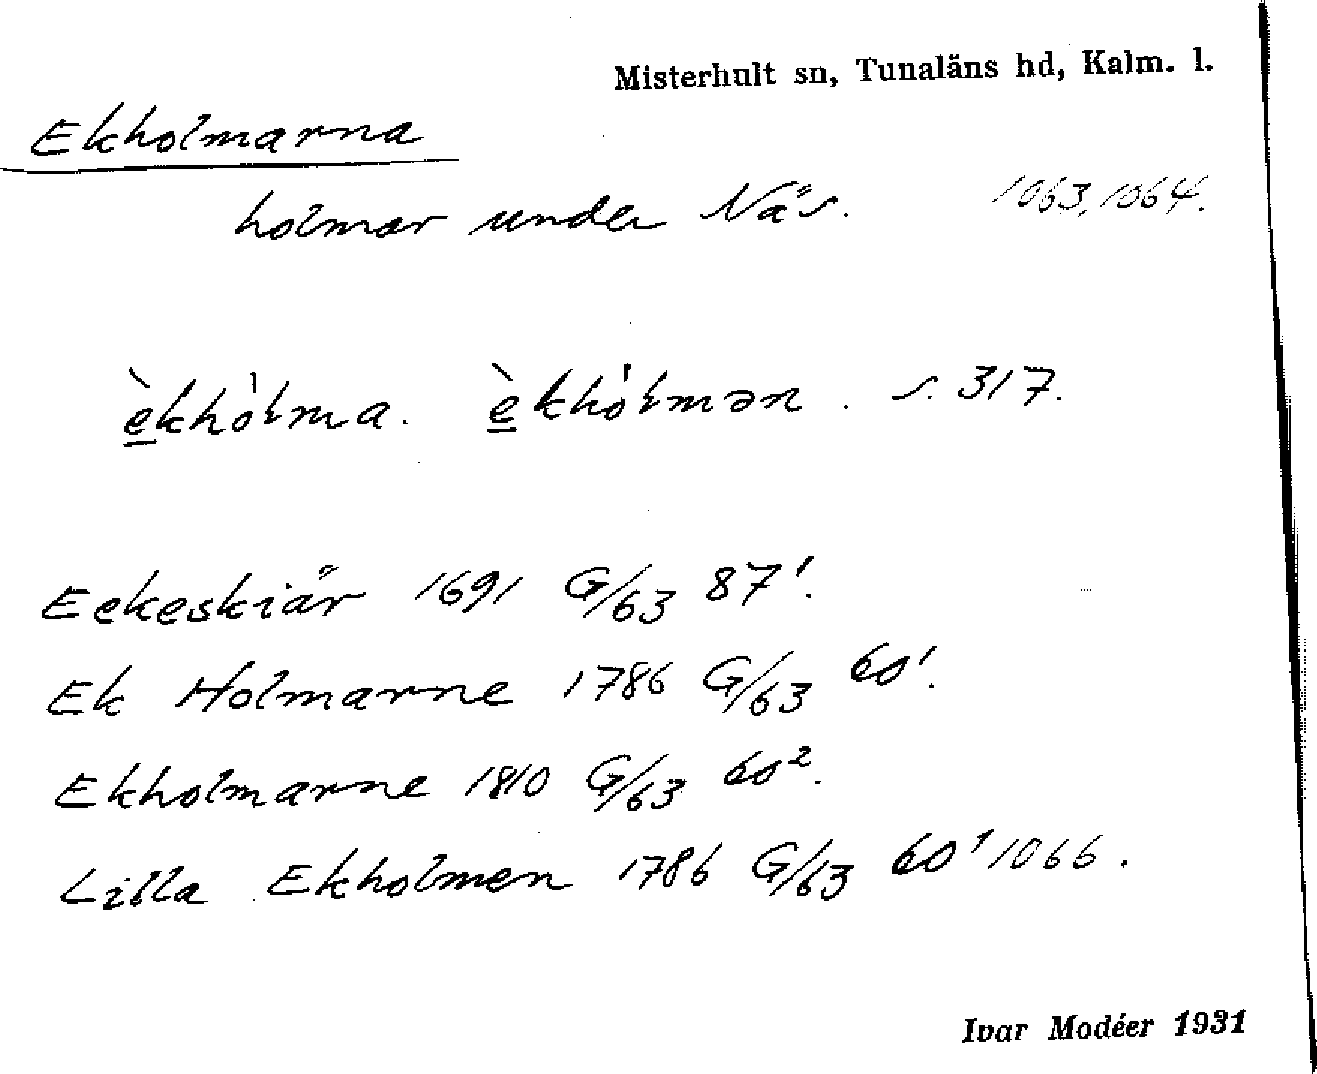 Misterhult sn, Tunaläns hd, Kalm. l.
Ekholmarna
holmar under Näs. 1063, 1064.
èkhólma. èkhólmən. s. 317.
Eekeskiär 1691 G/63 87¹.
Ek Holmarne 1786 G/63 60¹.
Ekholmarne 1810 G/63 60².
Lilla Ekholmen 1786 G/63 60¹ 1066.
Ivar Modéer 1931